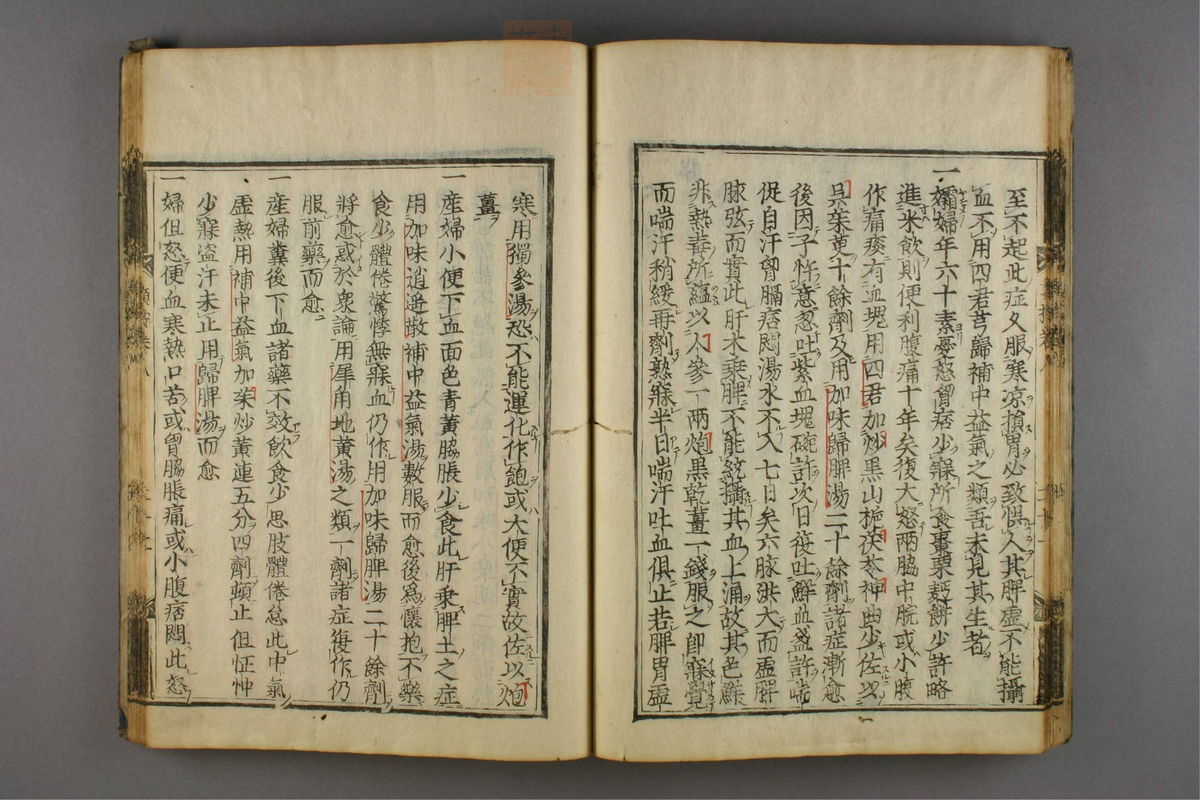 至不起此症又服寒凉損胃必致悞人其脾虚不能攝
血不用四君芎歸補中益氣之類吾未見其生者
一孀婦年六十素憂怒胷痞少寐所食棗栗麪餅少許略
進米飲則便利腹痛十年矣復大怒兩脇中脘或小腹
作痛痰有血塊用四君加炒黒山梔茯苓神曲少佐以
呉茱萸十餘劑及用加味歸脾湯二十餘劑諸症漸愈
後因子忤意忽吐紫血塊碗許次日後吐鮮血盞許喘
促自汗胷膈痞悶湯水不入七日矣六脉洪大而虚脾
脉弦而實此肝木乗脾不能統攝其血上涌故其色鮮
非熱毒所蘊以人參一兩炮黒乾薑一錢服之即寐覺
而喘汗稍緩再劑熟寐半日喘汗吐血倶止若脾胃虚
寒用獨參湯恐不能運化作飽或大便不實故佐以炮
薑
一産婦小便下血面色青黄脇脹少食此肝乗脾土之症
用加味逍遥散補中益氣湯數服而愈後爲懐抱不樂
食少體倦驚悸無寐血仍作用加味歸脾湯二十餘劑
將愈或於衆論用犀角地黄湯之類一劑諸症復作仍
服前藥而愈
一産婦糞後下血諸藥不效飲食少思肢體倦怠此中氣
虚熱用補中益氣加茱炒黄連五分四劑頓止但怔忡
少寐盗汗未止用歸脾湯而愈
一婦但怒便血寒熱口苦或胷脇脹痛或小腹痞悶此怒